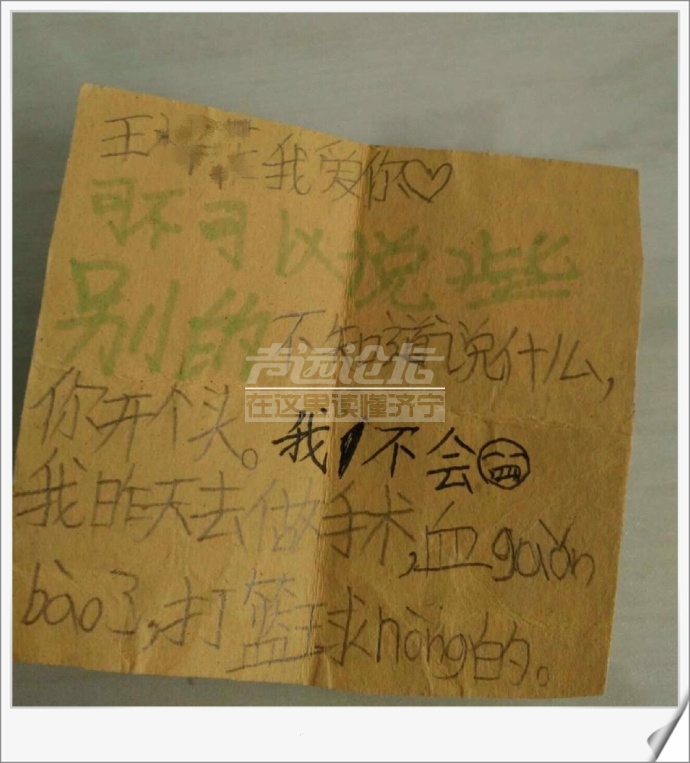 王 我爱你♡
可不可以说些
别的 不知道说什么，
你开个头。我不会
我昨天去做手术，血guǎn
bào了，打篮球nòng的。
声远论坛
在这里读懂济宁